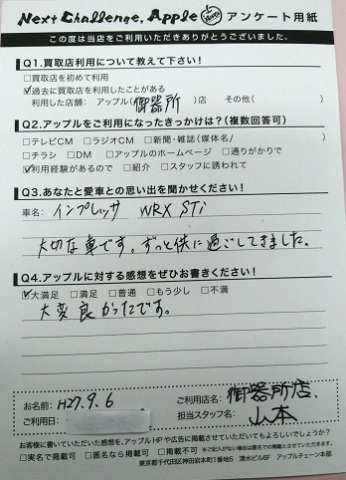 Next Challenge, Apple アンケート用紙
この度は当店をご利用いただきありがとうございました。
Q1.買取店利用について教えて下さい!
□買取店を初めて利用
☑過去に買取店を利用したことがある
利用した店舗: アップル(御器所)店 その他( )
Q2.アップルをご利用になったきっかけは?(複数回答可)
□テレビCM □ラジオCM □新聞・雑誌(媒体名/ )
□チラシ □DM □アップルのホームページ □通りがかりで
☑利用経験があるので □紹介 □スタッフに誘われて
Q3.あなたと愛車との思い出を聞かせください!
車名: インプレッサ WRX STi
大切な車です。ずっと供に過ごしてきました。
Q4.アップルに対する感想をぜひお書きください!
☑大満足 □満足 □普通 □もう少し □不満
大変良かったです。
お名前: H27.9.6 ご利用店名: 御器所店.
ご利用日: 担当スタッフ名: 山本
お客様に書いていただいた感想を、アップルHPや広告に掲載させていただいてもよろしいでしょうか?
□実名で掲載可 □匿名なら掲載可 □掲載不可 ※ご記入がない場合は匿名での掲載とさせていただきます。
東京都千代田区神田岩本町1番地5 清水ビル6F アップルチェーン本部